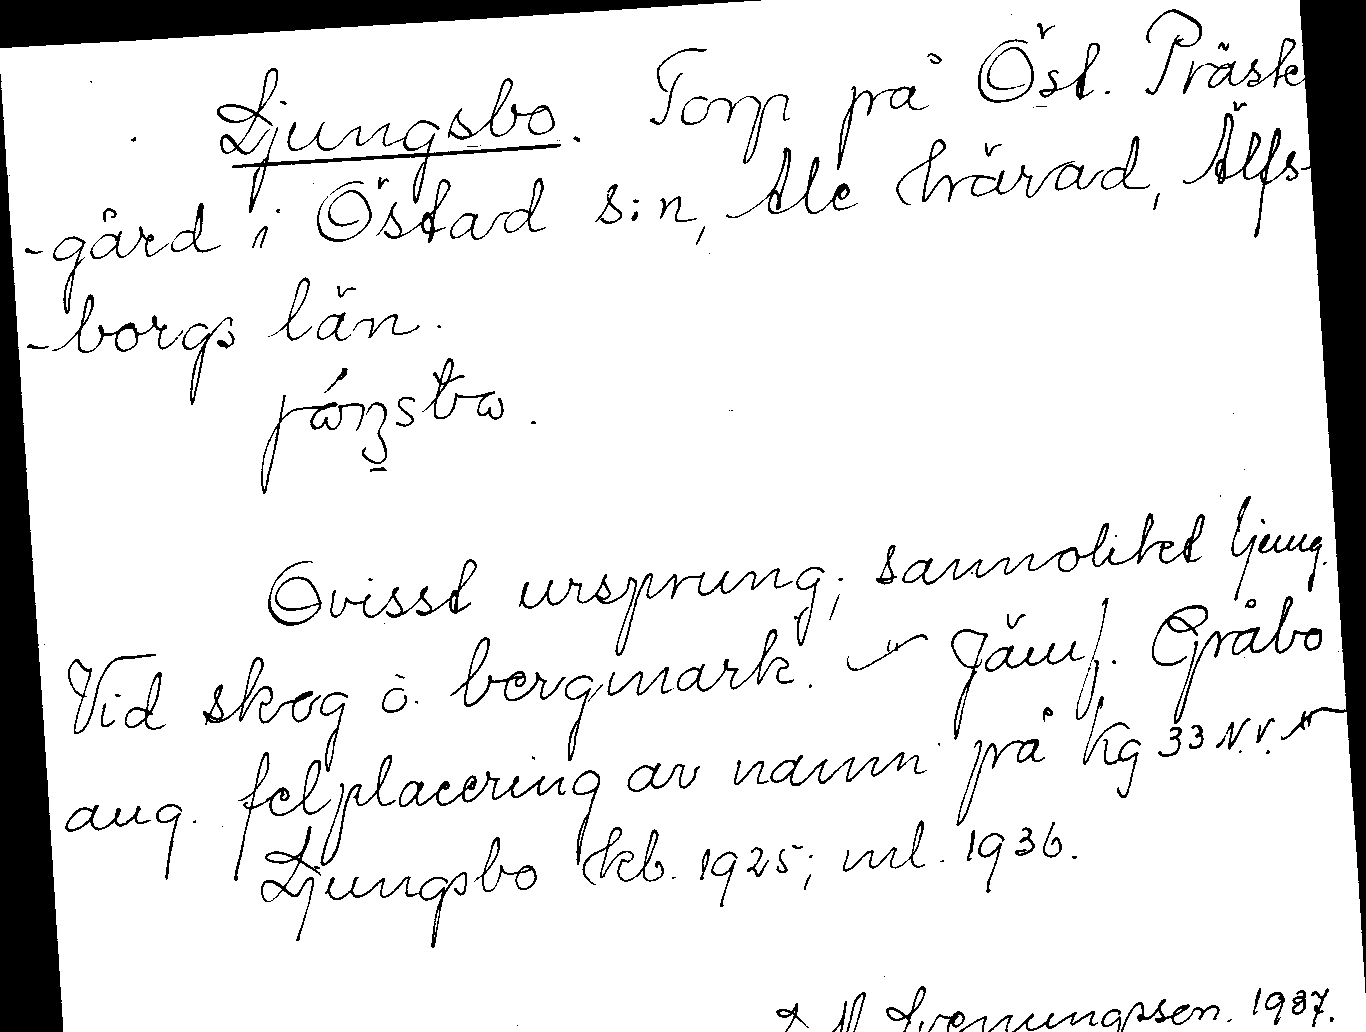 Ljungsbo. Torp på Öst. Präst-
-gård i Östad s:n, Ale härad, Älfs-
-borgs län.
Ovisst ursprung; sannolikt ljung.
Vid skog o. bergmark. — Jämf. Gråbo
ang. felplacering av namn på Kg 33 N.V. —
Ljungsbo kb. 1925; ml. 1936.
Svenungsson. 1937.